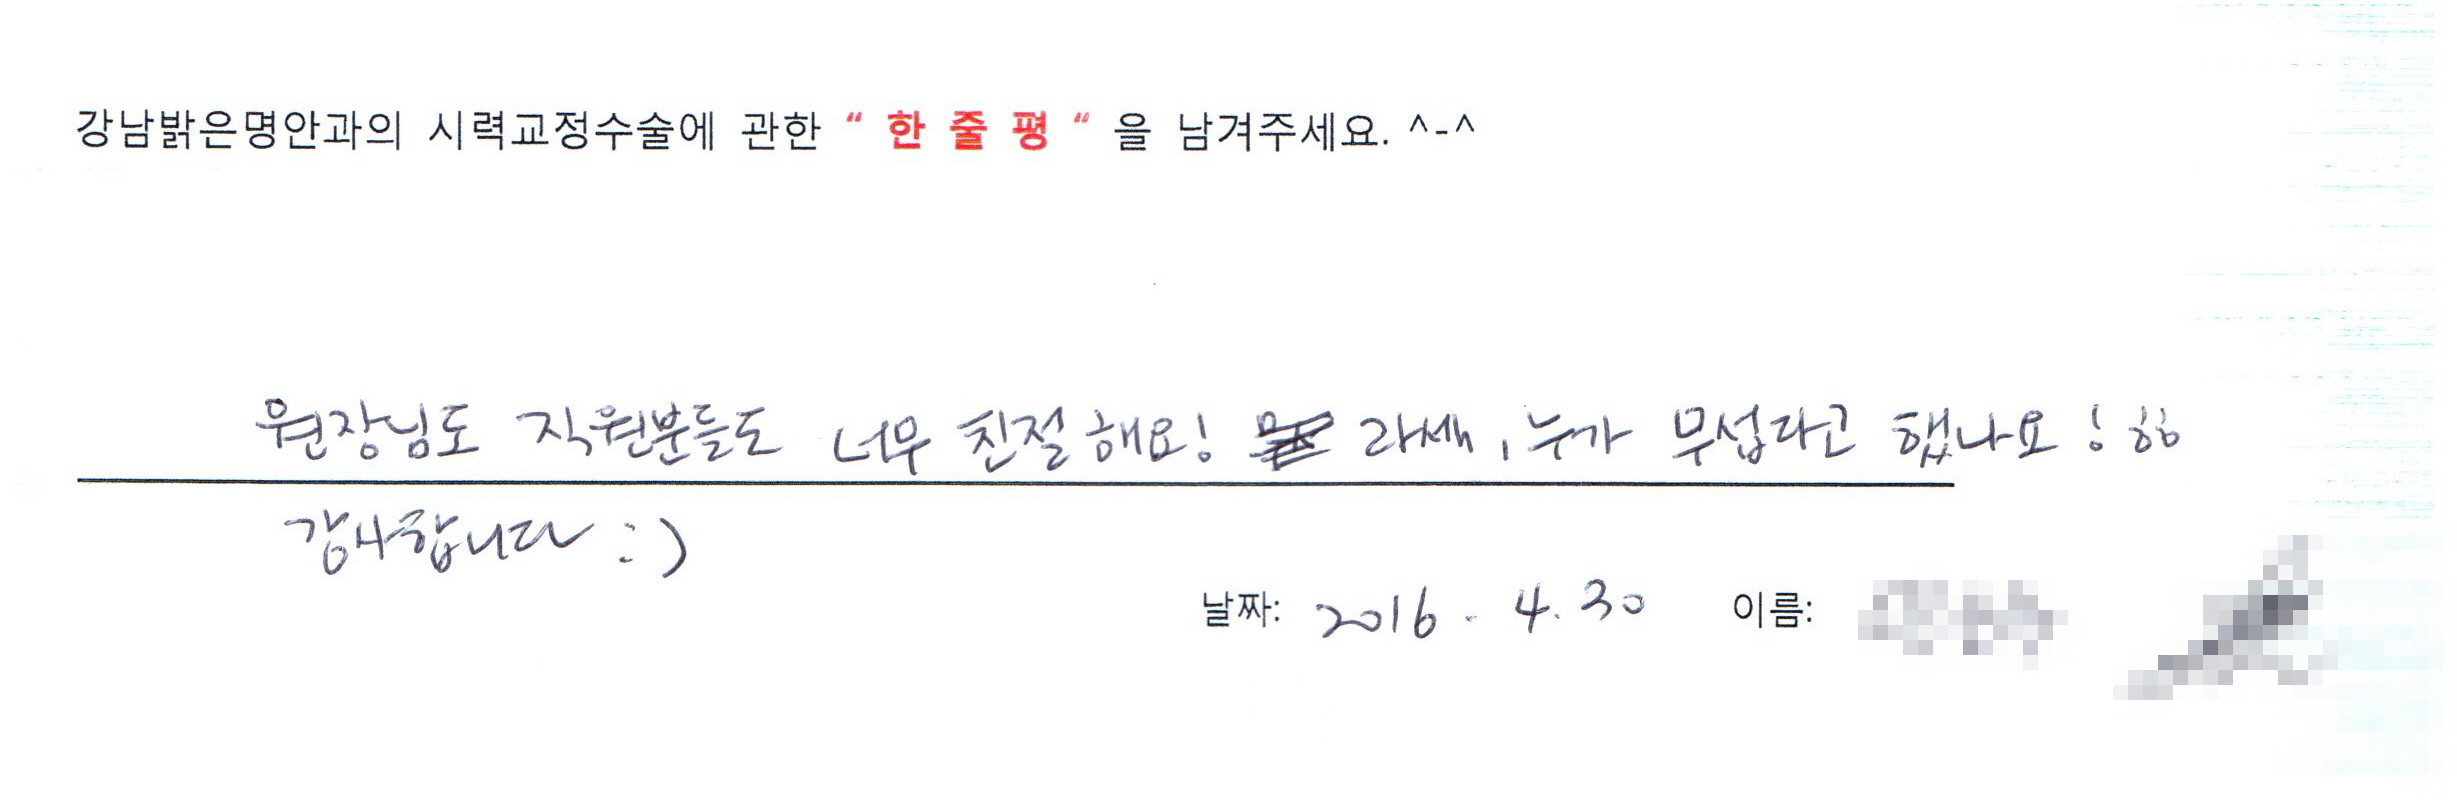 강남밝은명안과의 시력교정수술에 관한 “ 한 줄 평 “ 을 남겨주세요. ^-^
원장님도 직원분들도 너무 친절해요! 라섹, 누가 무섭다고 했나요!
감사합니다 :)
날짜: 2016. 4. 30 이름: